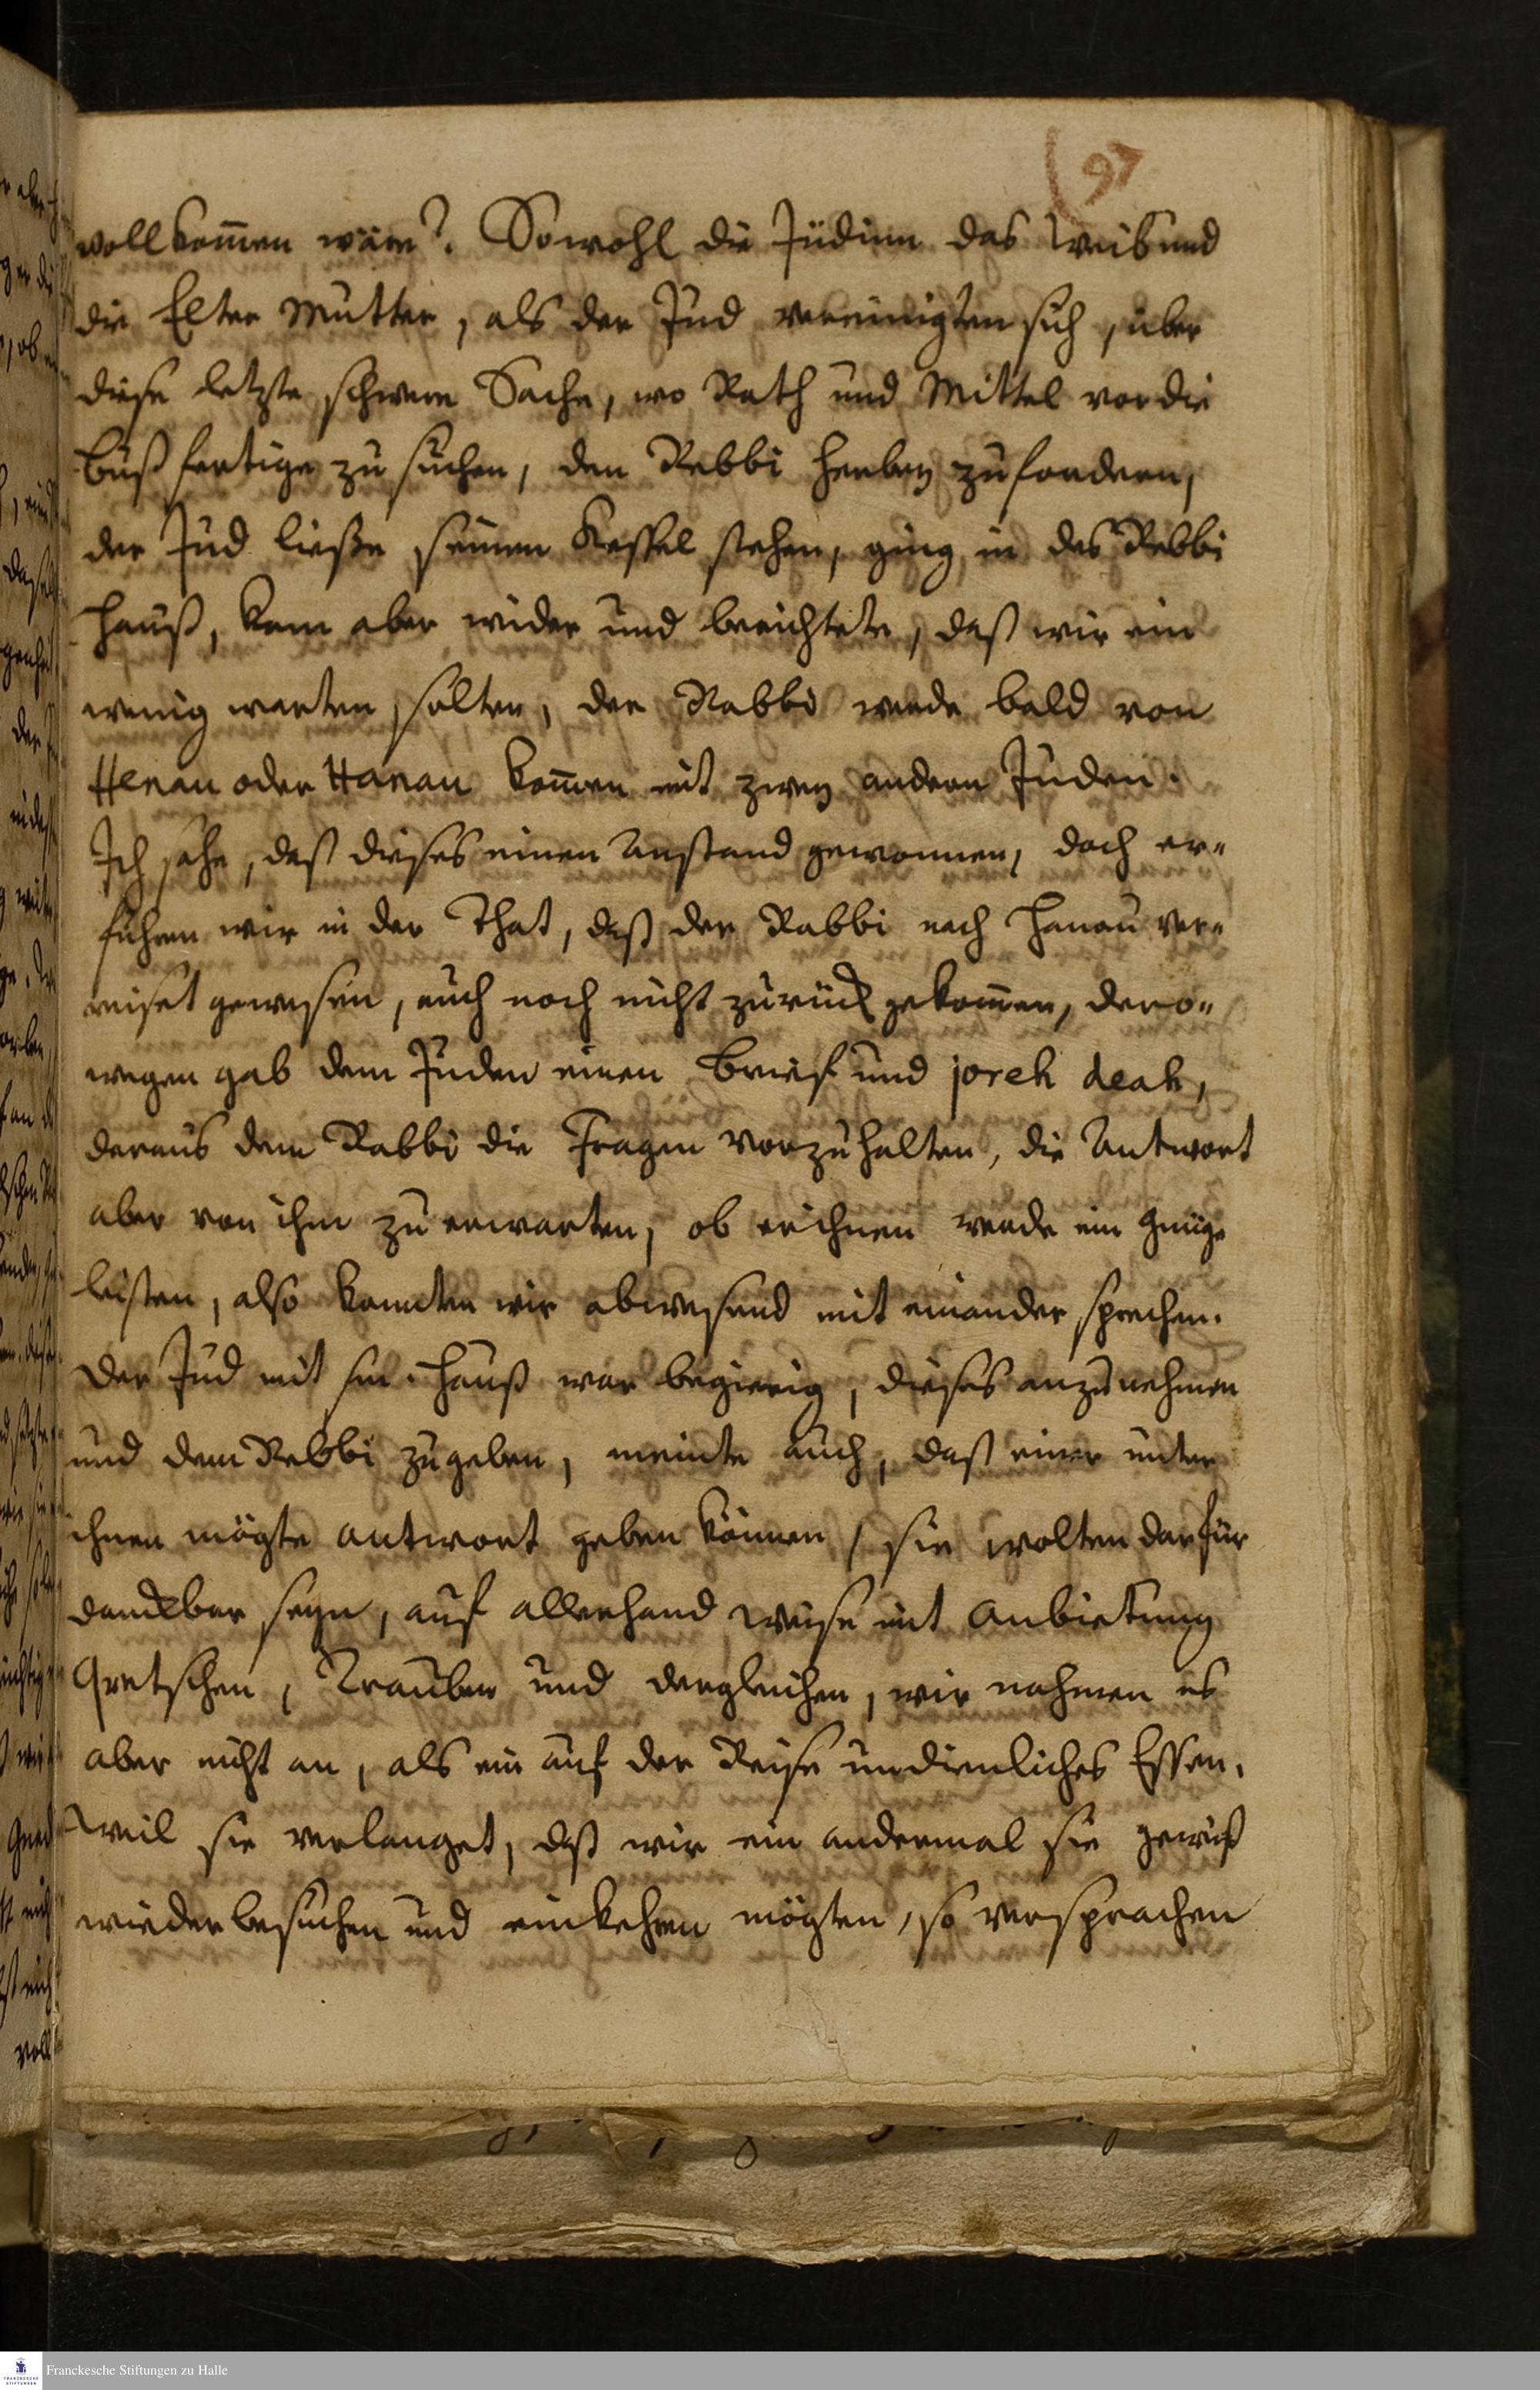 (97
vollkom̄en wäre? Sowohl die Jüdinn das Weib und
die Elter Mutter, als der Jud vereinigten sich, über
diese letzte schwere Sache, wo Rath und Mittel vor die
bußfertige zu suchen, den Rebbi herbey zufordern,
der Jud ließe seinen Kessel stehen, ging in des Rebbi
Hauß, kam aber wider und berichtete, daß wir ein
wenig warten solten, der Rabbi werde bald von
Henau oder Hanau kom̄en mit zwey andern Juden.
Ich sahe, daß dieses einen Anstand gewonnen, doch er-
fuhren wir in der That, daß der Rabbi nach Hanau ver-
reiset gewesen, auch noch nicht zurück gekom̄en, dero-
wegen gab dem Juden einen Brief und joreh deah,
daraus dem Rabbi die Fragen vorzuhalten, die Antwort
aber von ihm zu erwarten, ob er ihnen werde ein Gnüge
leisten, also konnten wir abwesend mit einander sprechen.
der Jud mit sm. Hauß war begierig, dieses anzunehmen
und dem Rebbi zugeben, meinte auch, daß einer unter
ihnen mögte antwort geben können, sie wolten darfür
danckbar seyn, auf allerhand weise mit Anbietung
Qvetschen, Trauben und dergleichen, wir nahmen es
aber nicht an, als ein auf der Reise undienliches Essen.
Weil sie verlanget, daß wir ein andermal sie gewiß
wieder besuchen und einkehren mögten, so versprachen
Franckesche Stiftungen zu Halle